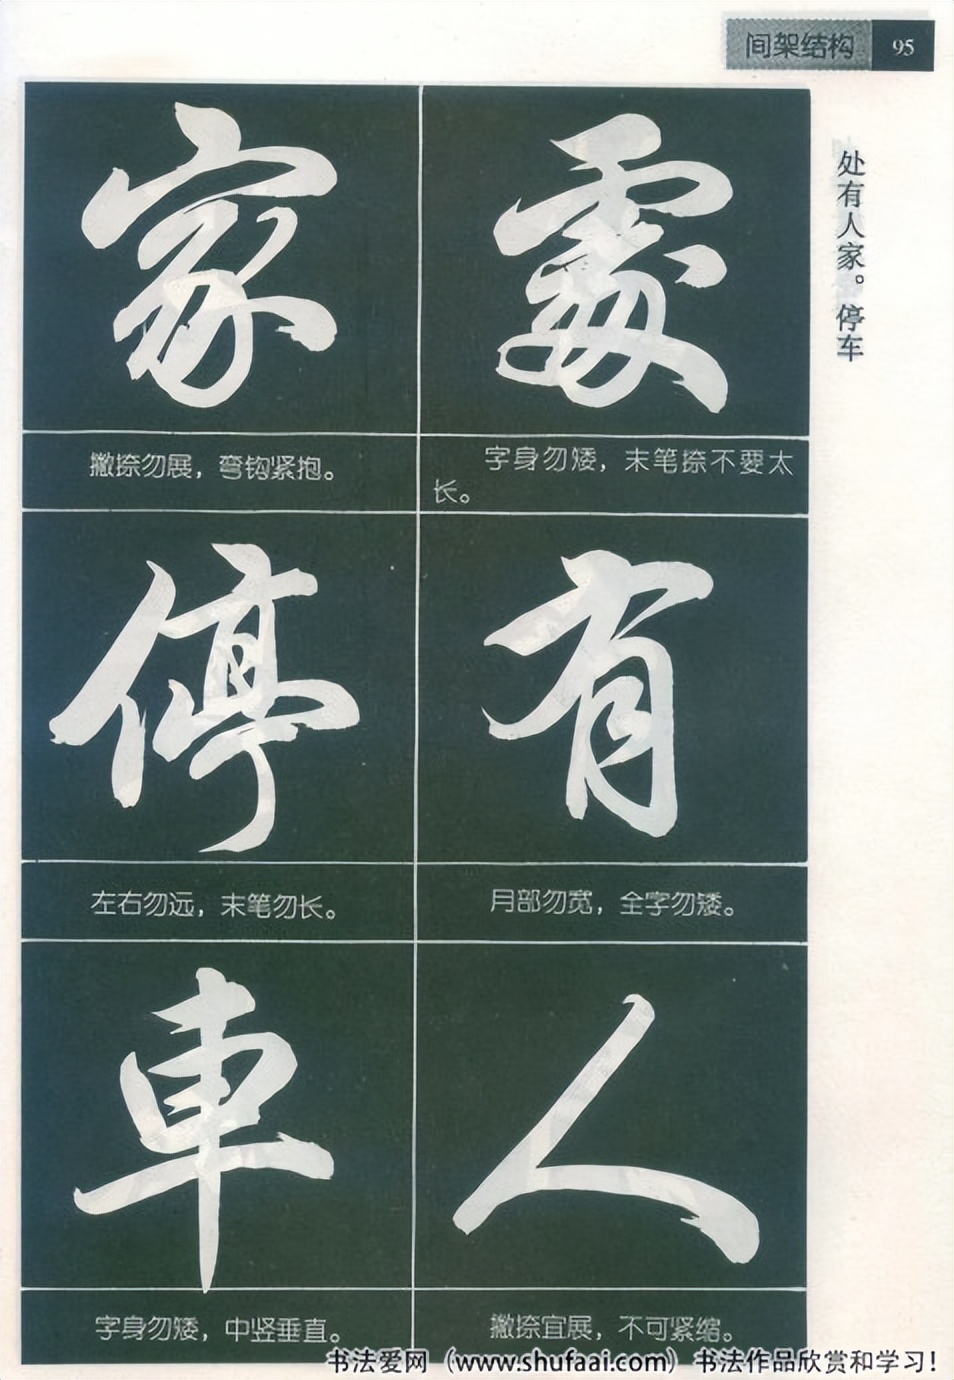 间架结构 95
处有人家。停车
處
字身勿矮，末笔捺不要太
长。
有
月部勿宽，全字勿矮。
人
撇捺宜展，不可紧缩。
家
撇捺勿展，弯钩紧抱。
停
左右勿远，末笔勿长。
車
字身勿矮，中竖垂直。
书法爱网（www.shufaai.com）书法作品欣赏和学习！